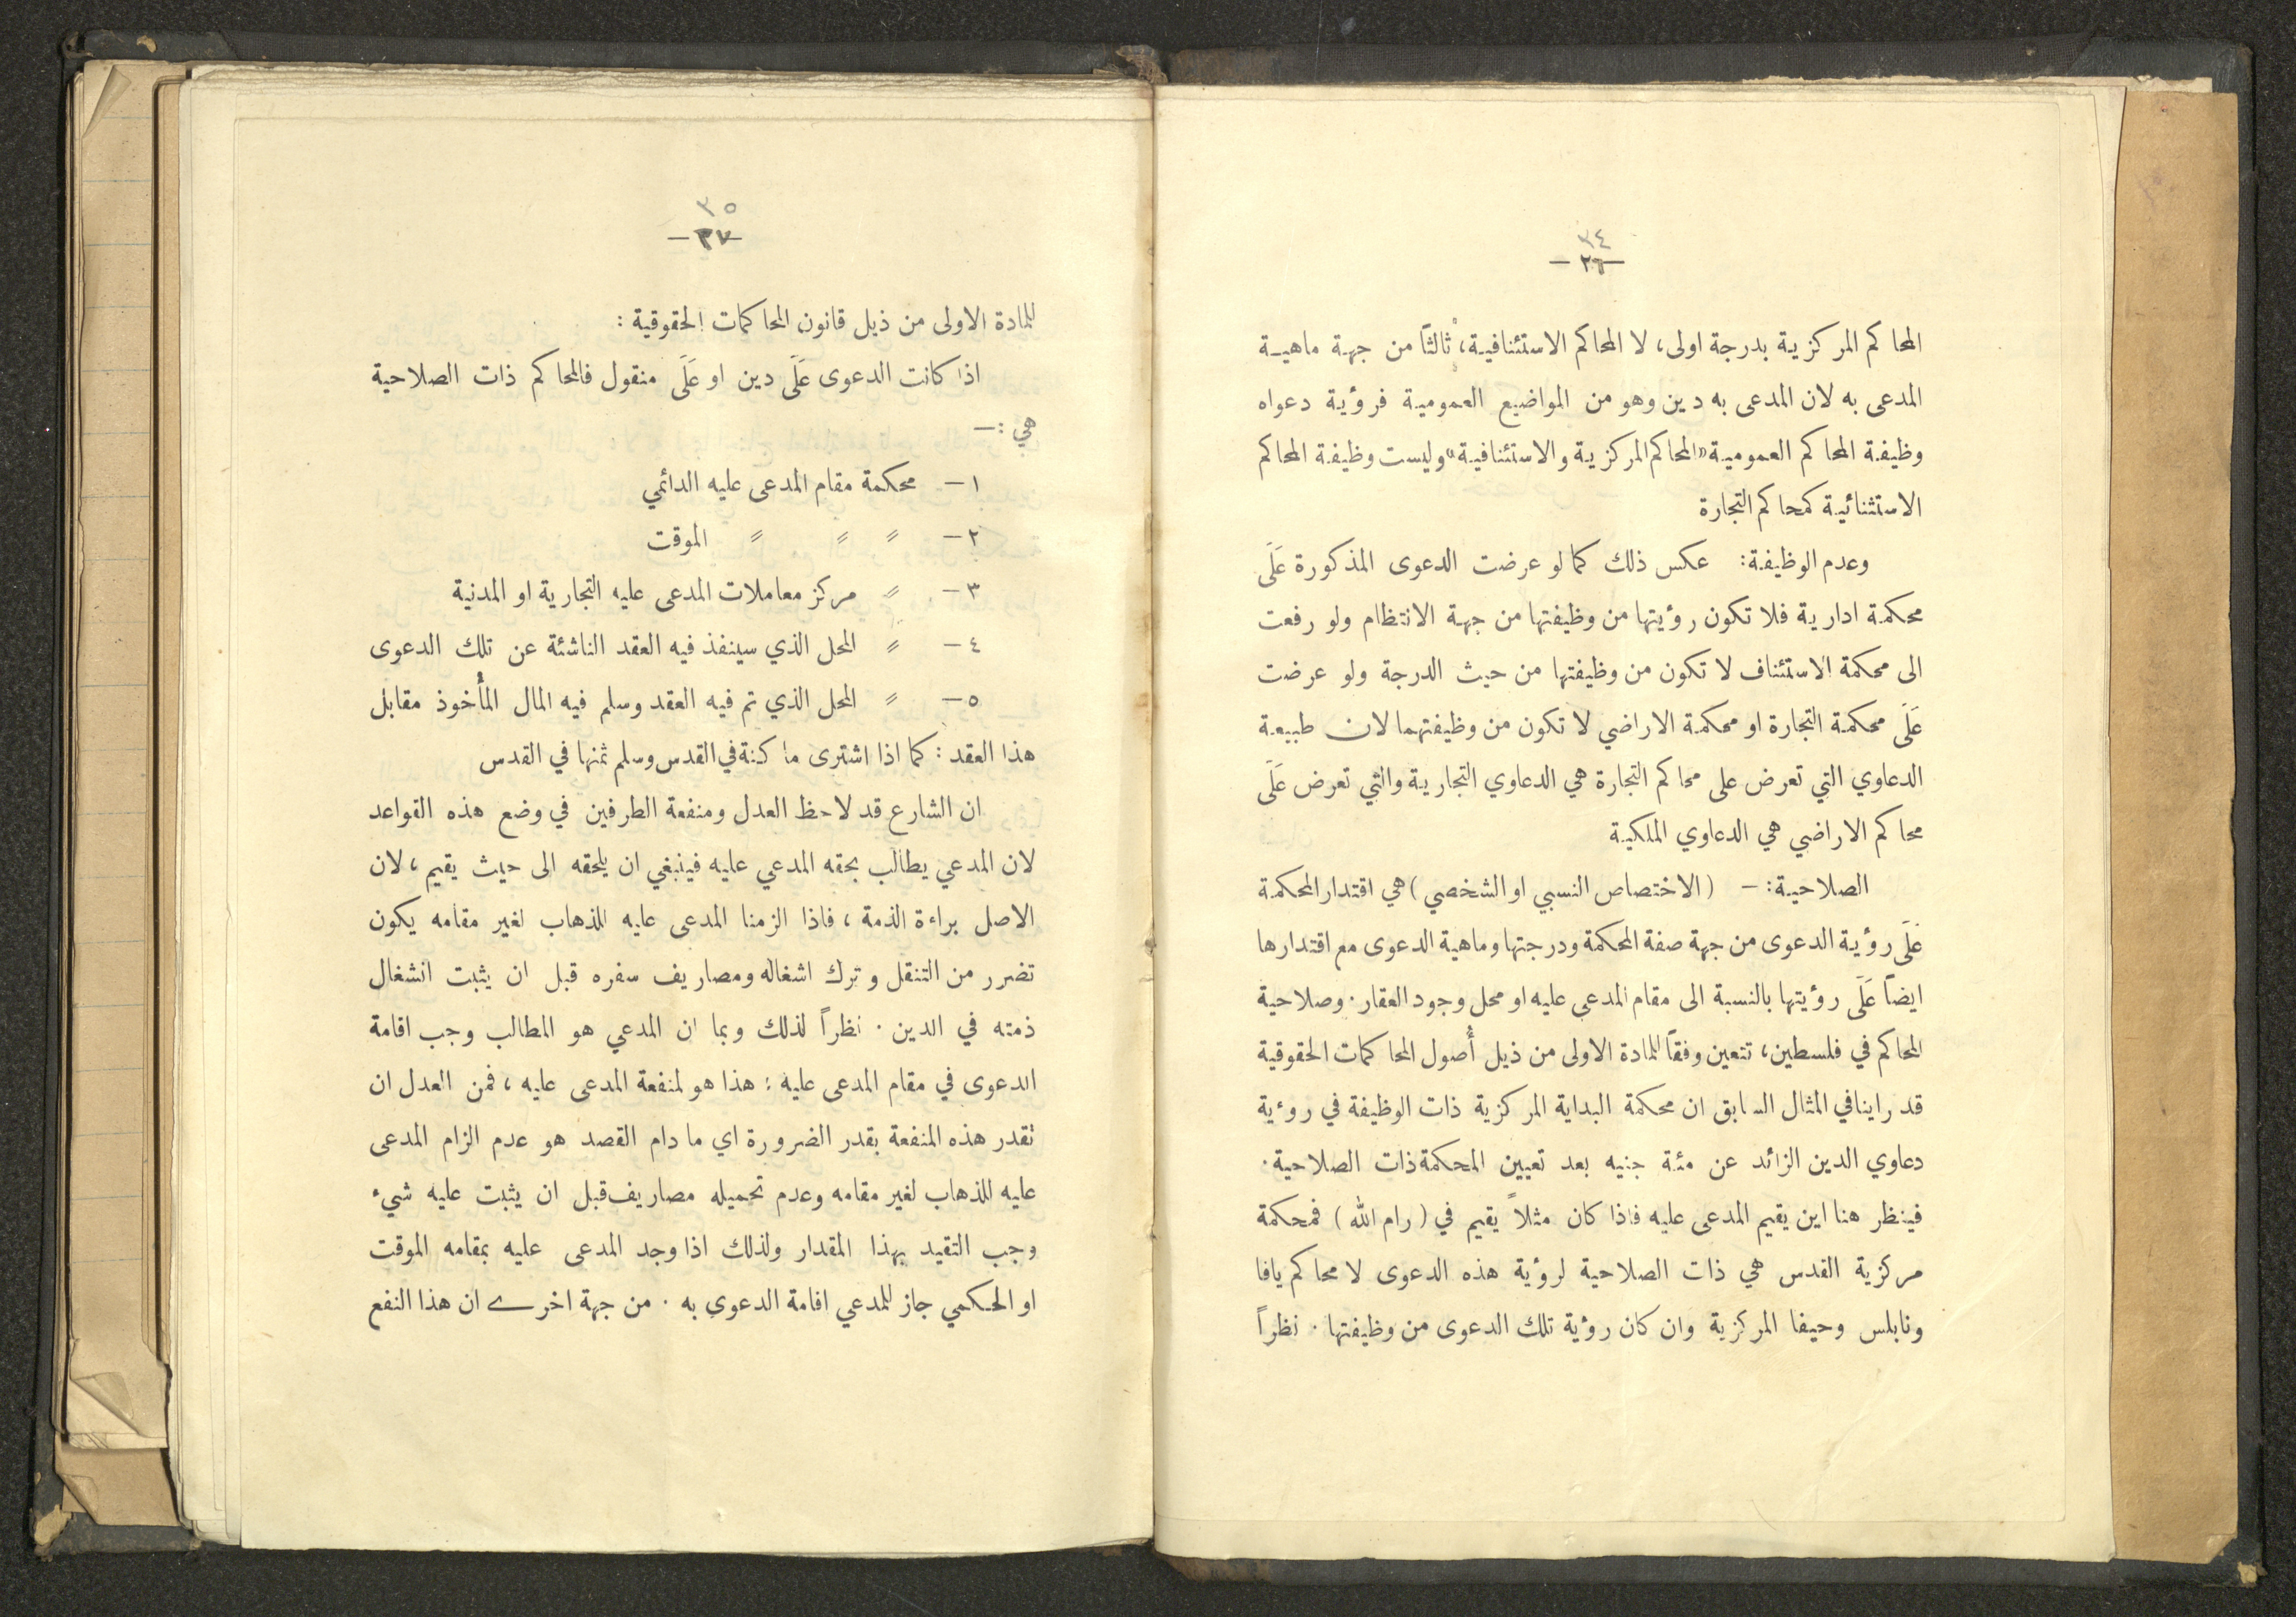 ٣٤
— ٢٦ —
المحاكم المركزية بدرجة اولى، لا المحاكم الاستئنافية، ثالثاً من جهة ماهية
المدعى به لان المدعى به دين وهو من المواضيع العمومية فرؤية دعواه
وظيفة المحاكم العمومية «المحاكم المركزية والاستئنافية» وليست وظيفة المحاكم
الاستثنائية كمحاكم التجارة
وعدم الوظيفة: عكس ذلك كما لو عرضت الدعوى المذكورة عَلَى
محكمة ادارية فلا تكون رؤيتها من وظيفتها من جهة الانتظام ولو رفعت
الى محكمة الاستئناف لا تكون من وظيفتها من حيث الدرجة ولو عرضت
عَلَى محكمة التجارة او محكمة الاراضي لا تكون من وظيفتهما لان طبيعة
الدعاوي التي تعرض على محاكم التجارة هي الدعاوي التجارية والتي تعرض عَلَى
محاكم الاراضي هي الدعاوي الملكية
الصلاحية: — (الاختصاص النسبي او الشخصي) هي اقتدار المحكمة
عَلَى رؤية الدعوى من جهة صفة المحكمة ودرجتها وماهية الدعوى مع اقتدارها
ايضاً عَلَى رؤيتها بالنسبة الى مقام المدعى عليه او محل وجود العقار. وصلاحية
المحاكم في فلسطين، تتعين وفقاً للمادة الاولى من ذيل أُصول المحاكمات الحقوقية
قد راينا في المثال السابق ان محكمة البداية المركزية ذات الوظيفة في روءية
دعاوي الدين الزائد عن مئة جنيه بعد تعيين المحكمة ذات الصلاحية.
فينظر هنا اين يقيم المدعى عليه فاذا كان مثلاً يقيم في (رام الله) فمحكمة
مركزية القدس هي ذات الصلاحية لرؤية هذه الدعوى لا محاكم يافا
ونابلس وحيفا المركزية وان كان رؤية تلك الدعوى من وظيفتها. نظراً
٣٥
— ٢٧ —
للمادة الاولى من ذيل قانون المحاكمات الحقوقية:
اذا كانت الدعوى عَلَى دين او عَلَى منقول فالمحاكم ذات الصلاحية
هي: —
١ — محكمة مقام المدعى عليه الدائمي
٢ — 〃 〃 〃 الموقت
٣ — 〃 مركز معاملات المدعى عليه التجارية او المدنية
٤ — 〃 المحل الذي سينفذ فيه العقد الناشئة عن تلك الدعوى
٥ — 〃 المحل الذي تم فيه العقد وسلم فيه المال المأخوذ مقابل
هذا العقد: كما اذا اشترى ماكنة في القدس وسلم ثمنها في القدس
ان الشارع قد لاحظ العدل ومنفعة الطرفين في وضع هذه القواعد
لان المدعي يطالب بحقه المدعي عليه فينبغي ان يلحقه الى حيث يقيم، لان
الاصل براءة الذمة، فاذا الزمنا المدعى عليه للذهاب لغير مقامه يكون
تضرر من التنقل وترك اشغاله ومصاريف سفره قبل ان يثبت انشغال
ذمته في الدين. نظراً لذلك وبما ان المدعي هو المطالب وجب اقامة
الدعوى في مقام المدعى عليه: هذا هو لمنفعة المدعى عليه، فمن العدل ان
تقدر هذه المنفعة بقدر الضرورة اي ما دام القصد هو عدم الزام المدعى
عليه للذهاب لغير مقامه وعدم تحميله مصاريف قبل ان يثبت عليه شيء
وجب التقيد بهذا المقدار ولذلك اذا وجد المدعى عليه بمقامه الموقت
او الحكمي جاز للمدعي اقامة الدعوى به. من جهة اخرى ان هذا النفع